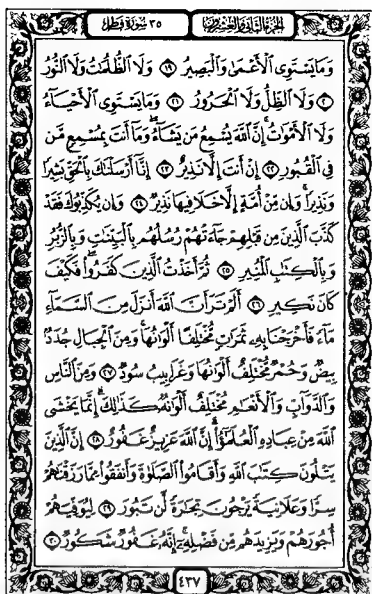 الجزء الثاني والعشرون ٣٥ سورة فاطر
وَمَا يَسْتَوِى ٱلْأَعْمَىٰ وَٱلْبَصِيرُ ۝١٩ وَلَا ٱلظُّلُمَٰتُ وَلَا ٱلنُّورُ
۝٢٠ وَلَا ٱلظِّلُّ وَلَا ٱلْحَرُورُ ۝٢١ وَمَا يَسْتَوِى ٱلْأَحْيَآءُ
وَلَا ٱلْأَمْوَٰتُ إِنَّ ٱللَّهَ يُسْمِعُ مَن يَشَآءُ وَمَآ أَنتَ بِمُسْمِعٍ مَّن
فِى ٱلْقُبُورِ ۝٢٢ إِنْ أَنتَ إِلَّا نَذِيرٌ ۝٢٣ إِنَّآ أَرْسَلْنَٰكَ بِٱلْحَقِّ بَشِيرًا
وَنَذِيرًا وَإِن مِّنْ أُمَّةٍ إِلَّا خَلَا فِيهَا نَذِيرٌ ۝٢٤ وَإِن يُكَذِّبُوكَ فَقَدْ
كَذَّبَ ٱلَّذِينَ مِن قَبْلِهِمْ جَآءَتْهُمْ رُسُلُهُم بِٱلْبَيِّنَٰتِ وَبِٱلزُّبُرِ
وَبِٱلْكِتَٰبِ ٱلْمُنِيرِ ۝٢٥ ثُمَّ أَخَذْتُ ٱلَّذِينَ كَفَرُوا۟ فَكَيْفَ
كَانَ نَكِيرِ ۝٢٦ أَلَمْ تَرَ أَنَّ ٱللَّهَ أَنزَلَ مِنَ ٱلسَّمَآءِ
مَآءً فَأَخْرَجْنَا بِهِۦ ثَمَرَٰتٍ مُّخْتَلِفًا أَلْوَٰنُهَا وَمِنَ ٱلْجِبَالِ جُدَدٌۢ
بِيضٌ وَحُمْرٌ مُّخْتَلِفٌ أَلْوَٰنُهَا وَغَرَابِيبُ سُودٌ ۝٢٧ وَمِنَ ٱلنَّاسِ
وَٱلدَّوَآبِّ وَٱلْأَنْعَٰمِ مُخْتَلِفٌ أَلْوَٰنُهُۥ كَذَٰلِكَ إِنَّمَا يَخْشَى
ٱللَّهَ مِنْ عِبَادِهِ ٱلْعُلَمَٰٓؤُا۟ إِنَّ ٱللَّهَ عَزِيزٌ غَفُورٌ ۝٢٨ إِنَّ ٱلَّذِينَ
يَتْلُونَ كِتَٰبَ ٱللَّهِ وَأَقَامُوا۟ ٱلصَّلَوٰةَ وَأَنفَقُوا۟ مِمَّا رَزَقْنَٰهُمْ
سِرًّا وَعَلَانِيَةً يَرْجُونَ تِجَٰرَةً لَّن تَبُورَ ۝٢٩ لِيُوَفِّيَهُمْ
أُجُورَهُمْ وَيَزِيدَهُم مِّن فَضْلِهِۦٓ إِنَّهُۥ غَفُورٌ شَكُورٌ ۝٣٠
٤٣٧